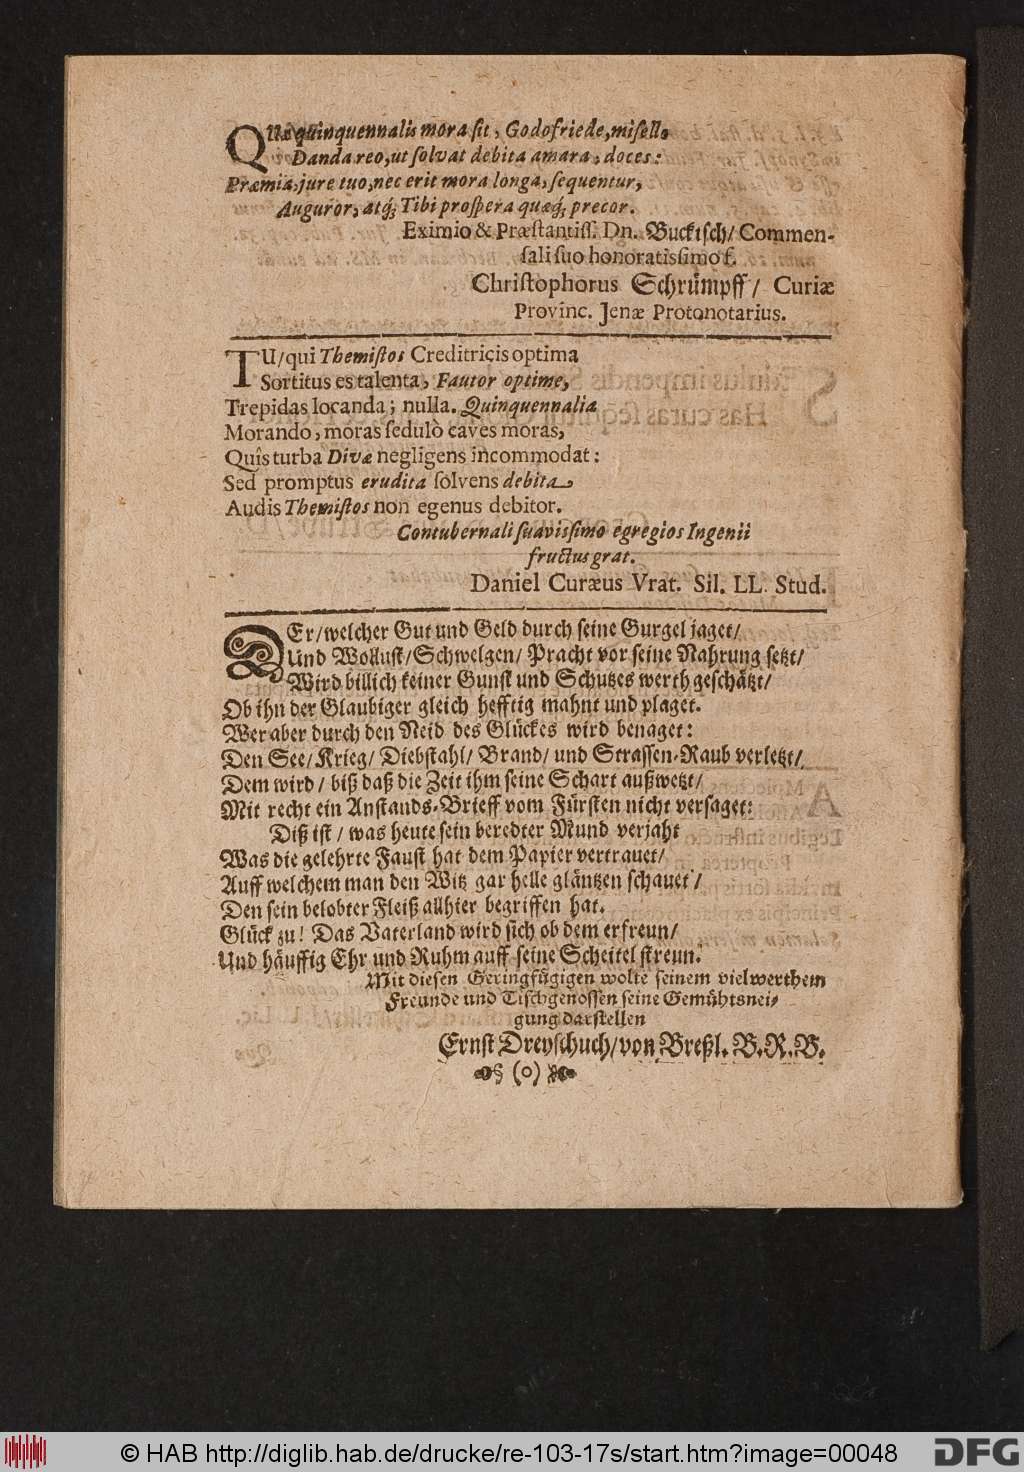 QUæ quinquennalis mora sit, Godofriede, misello
Danda reo, ut solvat debita amara, doces:
Præmia, jure tuo, nec erit mora longa, sequentur,
Auguror, atq; Tibi prospera quæq; precor.
Eximio & Præstantiss. Dn. Buckisch/ Commen-
sali suo honoratissimo f.
Christophorus Schrümpff/ Curiæ
Provinc. Jenæ Protonotarius.
TU/ qui Themistos Creditricis optima
Sortitus es talenta, Fautor optime,
Trepidas locanda; nulla. Quinquennalia
Morando, moras sedulò caves moras,
Quîs turba Divæ negligens incommodat:
Sed promptus erudita solvens debita,
Audis Themistos non egenus debitor.
Contubernali suavissimo egregios Ingenii
fructus grat.
Daniel Curæus Vrat. Sil. LL. Stud.
DEr/ welcher Gut und Geld durch seine Gurgel jaget/
Und Wollust/ Schwelgen/ Pracht vor seine Nahrung setzt/
Wird billich keiner Gunst und Schutzes werth geschätzt/
Ob ihn der Glaubiger gleich hefftig mahnt und plaget.
Wer aber durch den Neid des Glückes wird benaget:
Den See/ Krieg/ Diebstahl/ Brand/ und Strassen-Raub verletzt/
Dem wird/ biß daß die Zeit ihm seine Schart außwetzt/
Mit recht ein Anstands-Brieff vom Fürsten nicht versaget:
Diß ist/ was heute sein beredter Mund verjaht
Was die gelehrte Faust hat dem Papier vertrauet/
Auff welchem man den Witz gar helle gläntzen schauet/
Den sein belobter Fleiß allhier begriffen hat.
Glück zu! Das Vaterland wird sich ob dem erfreun/
Und häuffig Ehr und Ruhm auff seine Scheitel streun.
Mit diesen Geringfügigen wolte seinem vielwerthem
Freunde und Tischgenossen seine Gemühtsnei-
gung darstellen
Ernst Dreyschuch/ von Breßl. B. R. B.
(o)
© HAB http://diglib.hab.de/drucke/re-103-17s/start.htm?image=00048
DFG